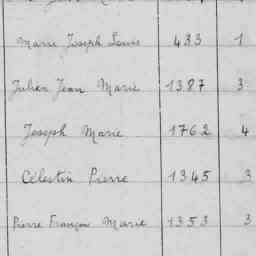 Marie Joseph Louis 433 1
Julien Jean Marie 1387 3
Joseph Marie 1762 4
Célestin Pierre 1345 3
Pierre François Marie 1353 3